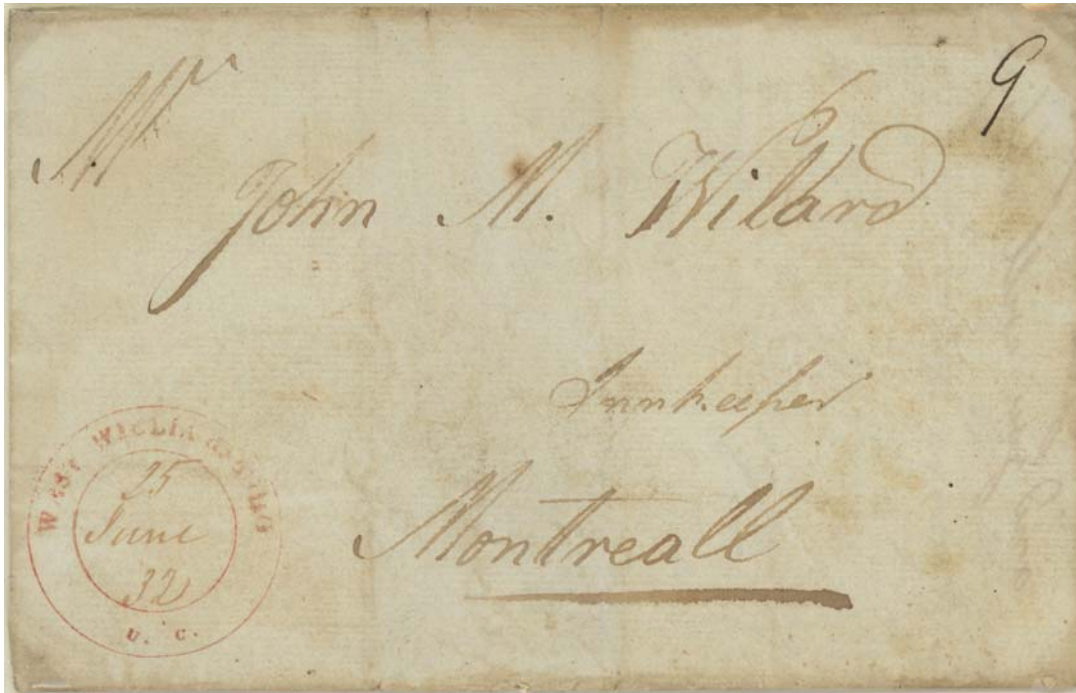 Mr
9
John M. Wilard
Innkeeper
Montreall
WEST WILLIAMSBURG
25
June
32
U. C.